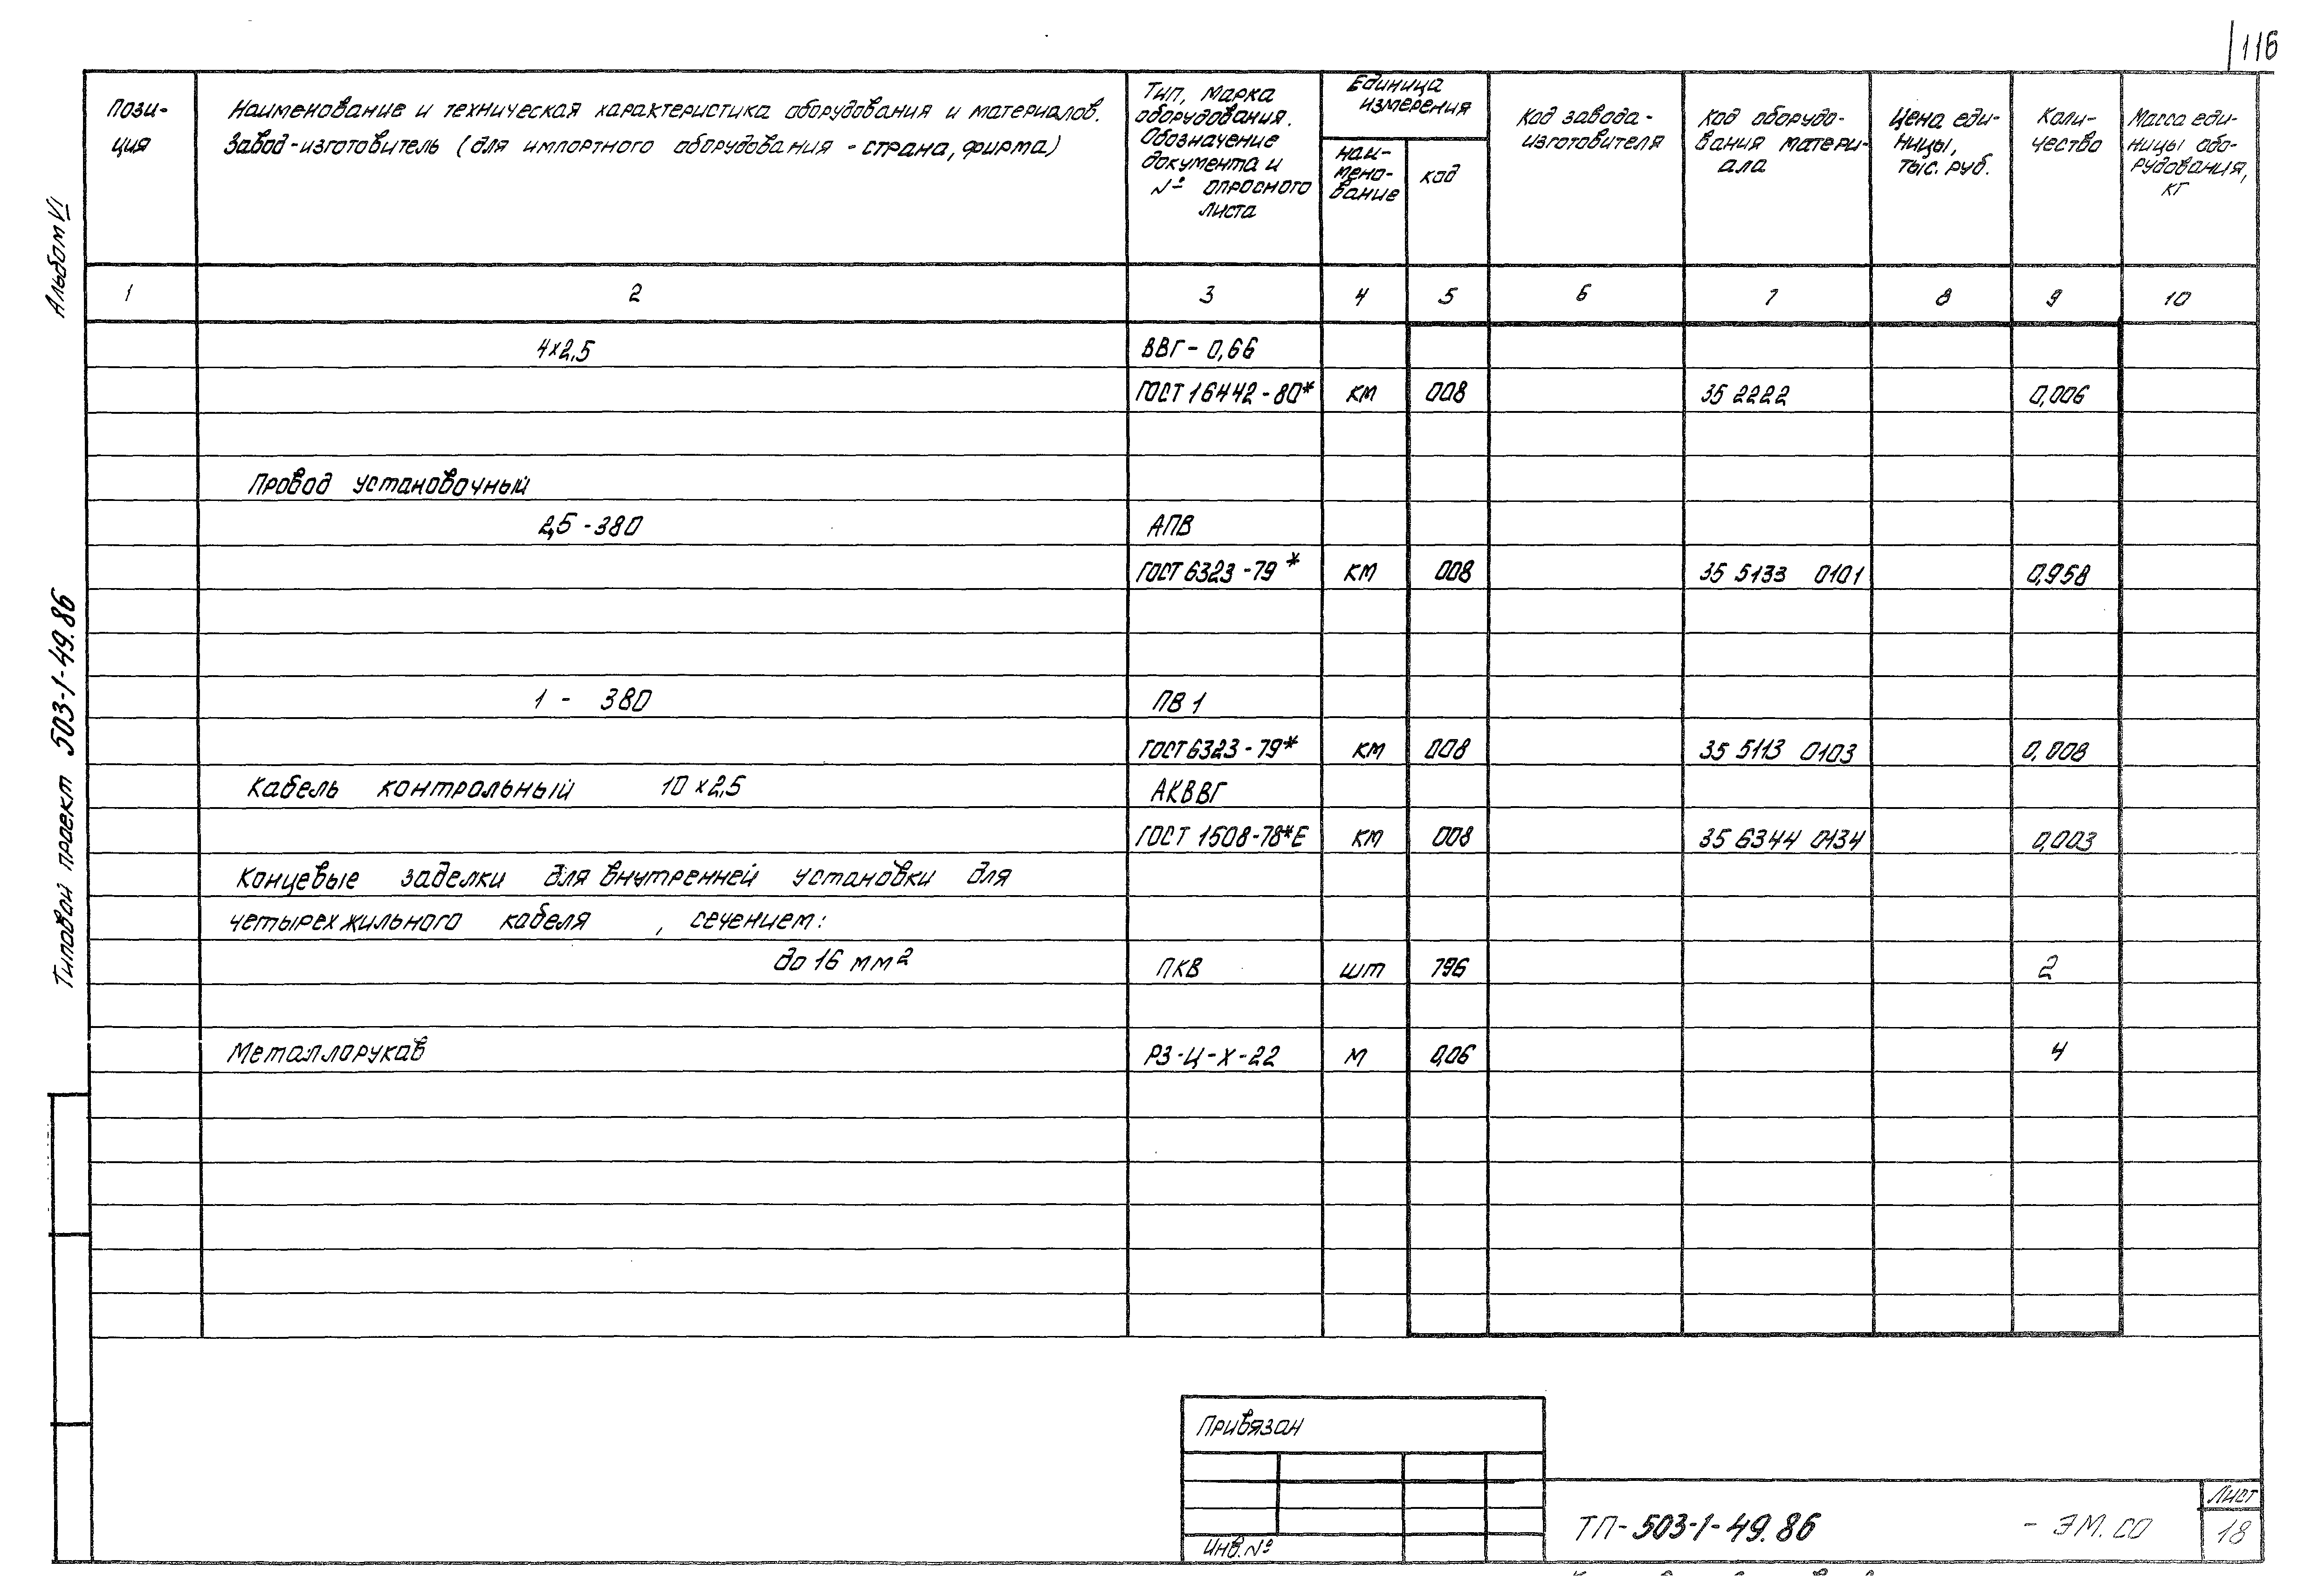 116
Пози-
ция
Наименование и техническая характеристика оборудования и материалов.
Завод-изготовитель (для импортного оборудования - страна, фирма)
Тип, марка
оборудования.
Обозначение
документа и
№ опросного
листа
Единица
измерения
наи-
мено-
вание
код
Код завода-
изготовителя
Код оборудо-
вания матери-
ала
Цена еди-
ницы,
тыс. руб.
Коли-
чество
Масса еди-
ницы обо-
рудования,
кг
1 2 3 4 5 6 7 8 9 10
4х2,5 ВВГ-0,66
ГОСТ 16442-80* км 008 35 2222 0,006
Провод установочный
2,5-380 АПВ
ГОСТ 6323-79* км 008 35 5133 0101 0,958
1 - 380 ПВ 1
ГОСТ 6323-79* км 008 35 5113 0103 0,008
Кабель контрольный 10х2,5 АКВВГ
ГОСТ 1508-78*Е км 008 35 6344 0134 0,003
Концевые заделки для внутренней установки для
четырехжильного кабеля , сечением:
до 16 мм² ПКВ шт 796 2
Металлорукав РЗ-Ц-Х-22 м 0,06 4
Альбом VI
Типовой проект 503-1-49.86
Привязан
Инв. №
ТП-503-1-49.86 - ЭМ.СО
Лист
18